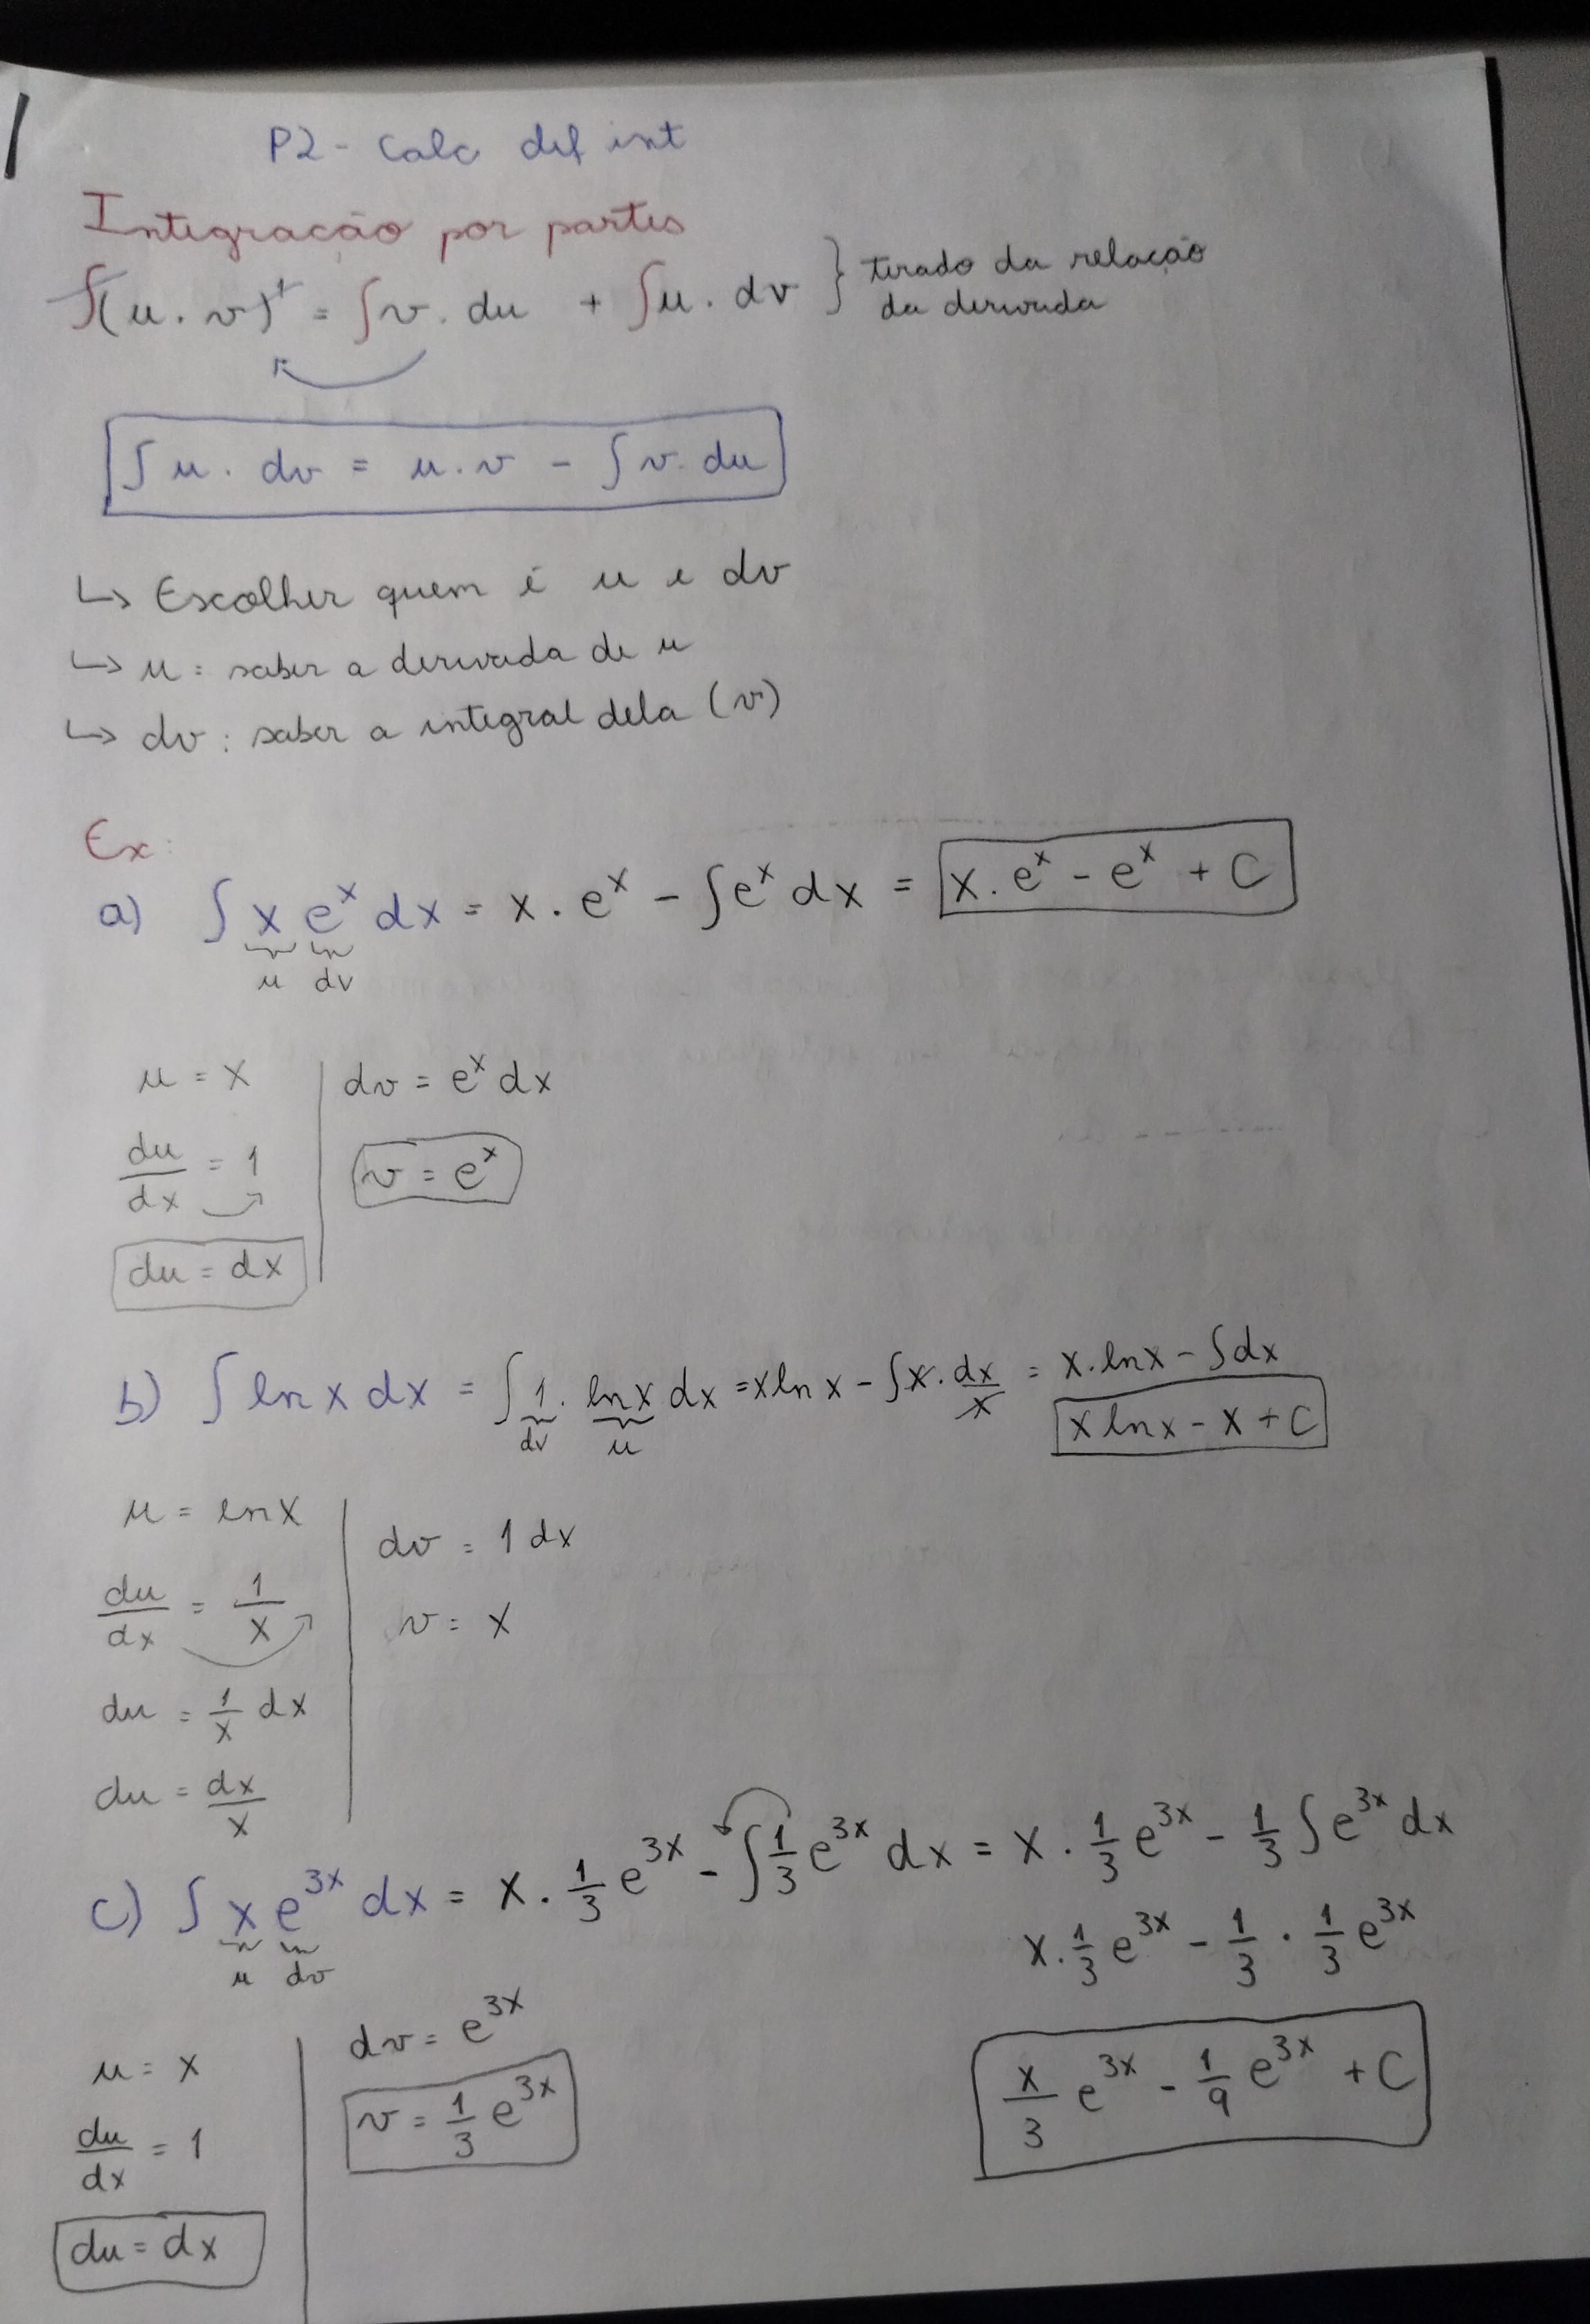 P2 - Calc dif int
Integração por partes
∫(u . v)' = ∫v . du + ∫u . dv } tirado da relação
da derivada
∫ u . dv = u . v - ∫ v . du
↳ Escolher quem é u e dv
↳ u : saber a derivada de u
↳ dv : saber a integral dela (v)
Ex:
a) ∫ x eˣ dx = x . eˣ - ∫eˣ dx = x . eˣ - eˣ + C
u dv
u = x | dv = eˣ dx
du/dx = 1 | v = eˣ
du = dx
b) ∫ ln x dx = ∫ 1 . ln x dx = x ln x - ∫x . dx/x = x . ln x - ∫dx
dv u
x ln x - x + C
u = ln x | dv = 1 dx
du/dx = 1/x | v = x
du = 1/x dx
du = dx/x
c) ∫ x e³ˣ dx = x . 1/3 e³ˣ - ∫ 1/3 e³ˣ dx = x . 1/3 e³ˣ - 1/3 ∫ e³ˣ dx
u dv
x . 1/3 e³ˣ - 1/3 . 1/3 e³ˣ
u = x | dv = e³ˣ
du/dx = 1 | v = 1/3 e³ˣ
x/3 e³ˣ - 1/9 e³ˣ + C
du = dx